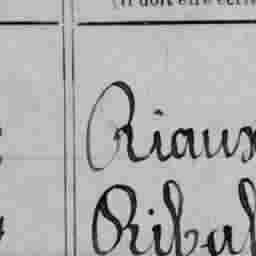 (Il doit être écrit
Riaux
Ribal